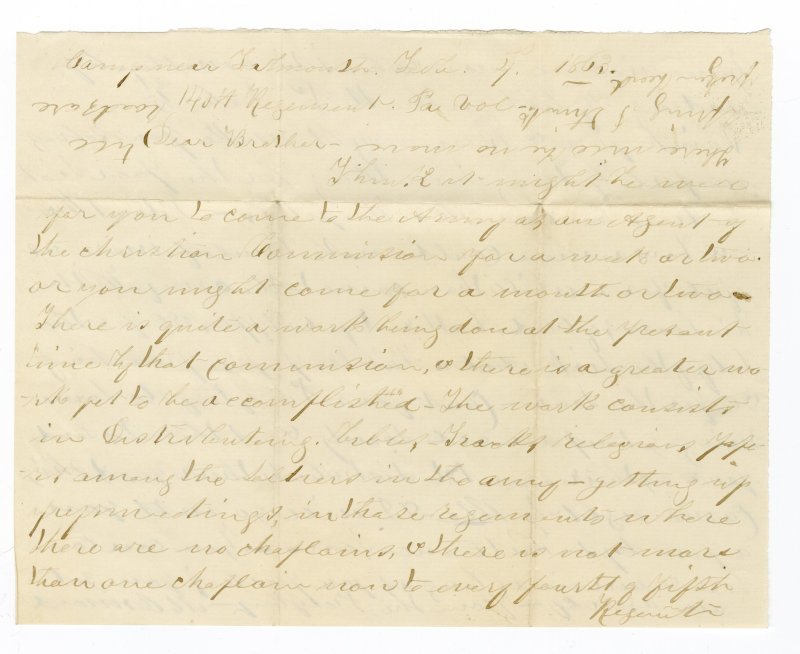 Camp near Falmouth. Feb. 9. 1863.
140th Regement. Pa Vol
Dear Brother-
Think it might be well
for you to come to the Army as an Agent of
the christian Commission for a week or two.
or you might come for a month or two
There is quite a work being don at the present
time by that commission, & there is a greater wo
-rk yet to be accomplished - The work consists
in Distributing. Bibles, - Tracks, relegious, pape
-rs among the soldiers in the army - getting up
in those regements where
there are no chaplains, & there is not more
than one chaplain now to every fourth of fifth
Regemts
there was in no more
thing I think